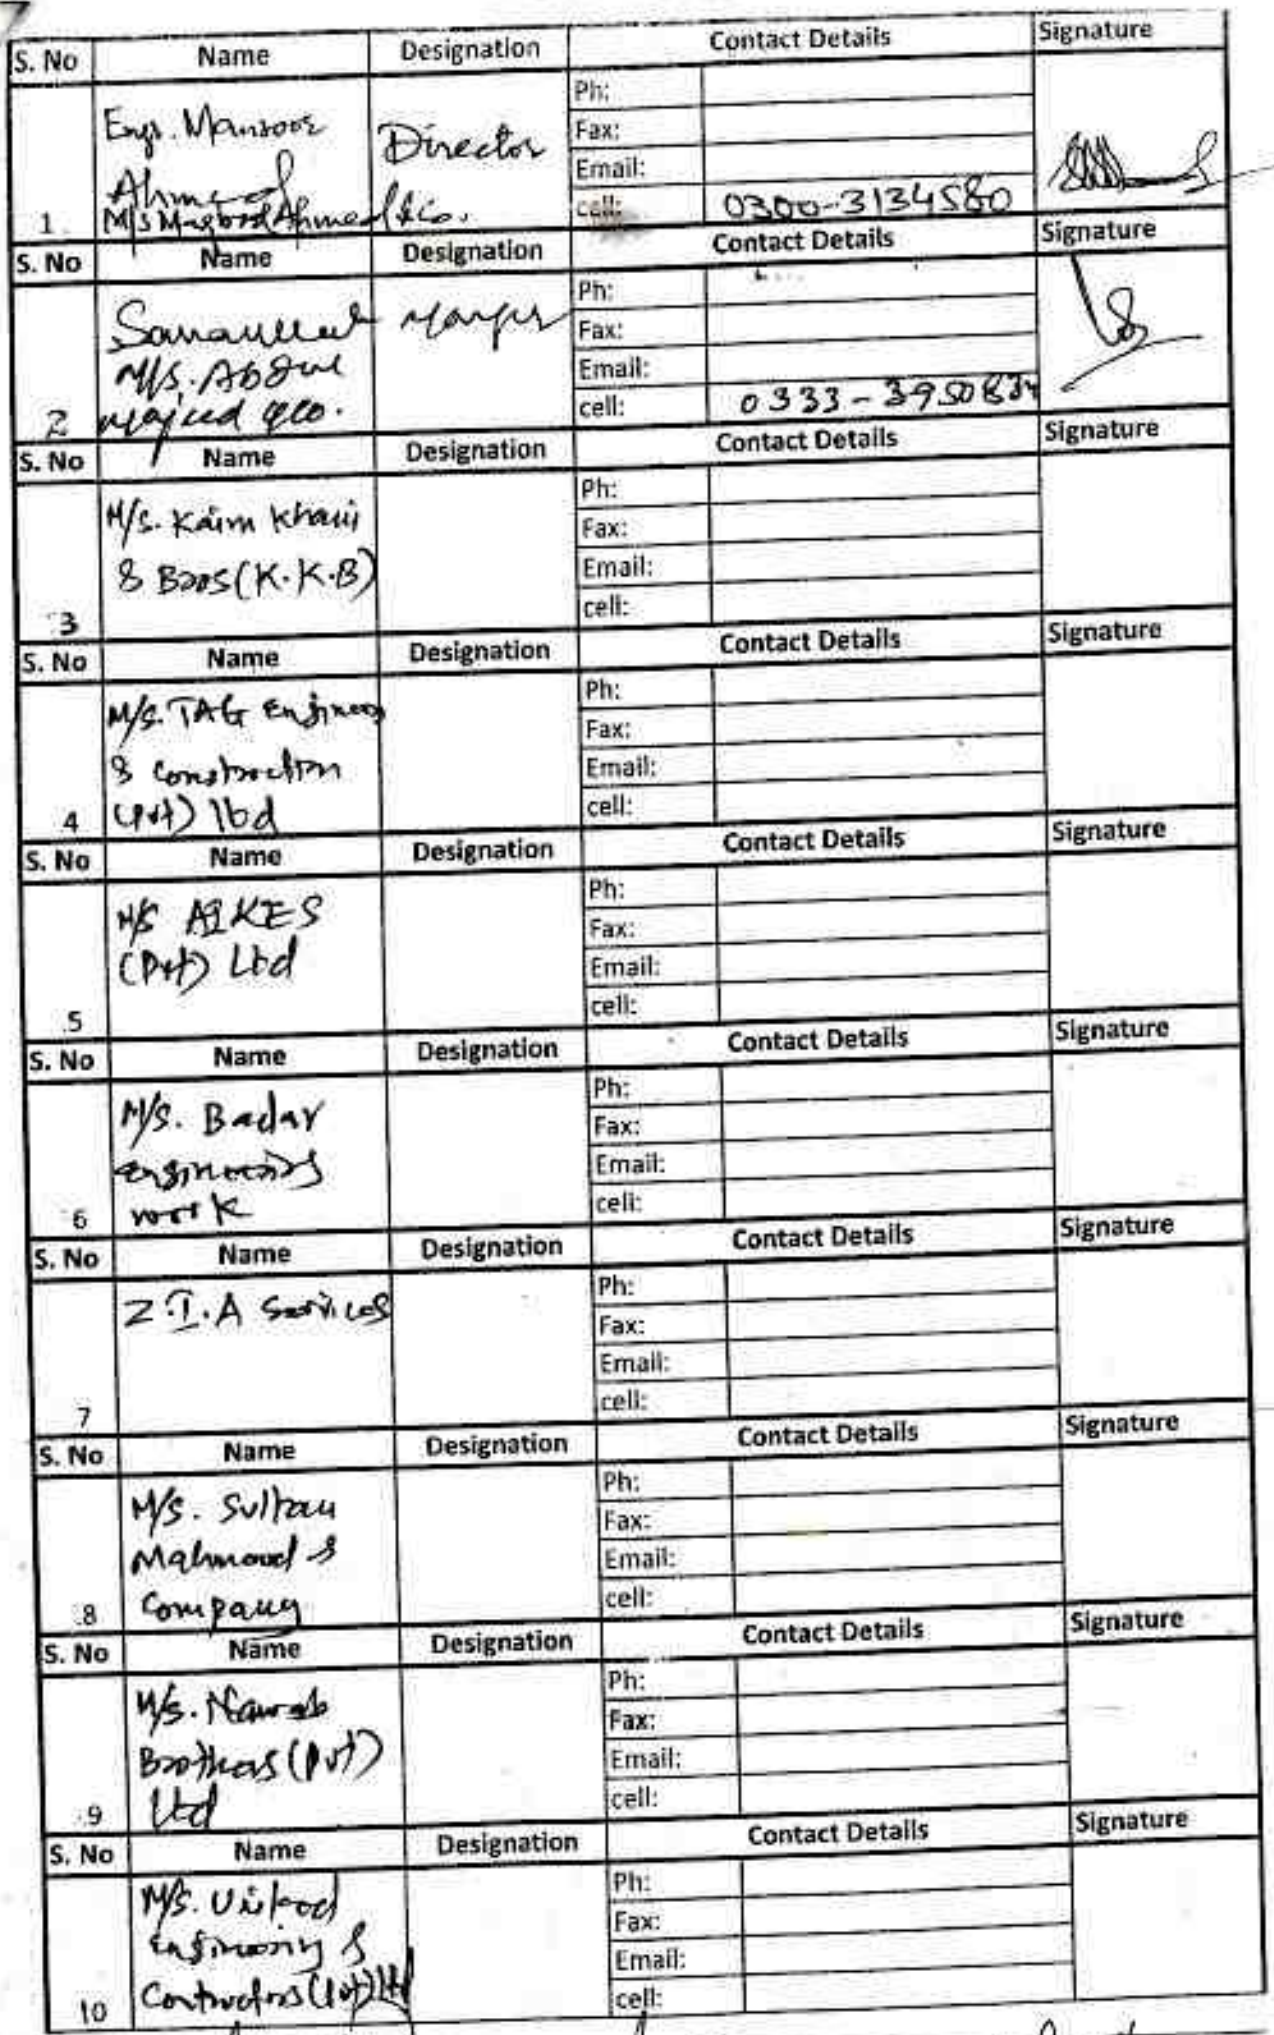 S. No Name Designation Contact Details Signature
Engr. Mansoor Director Ph:
Ahmed Fax:
M/S Maqbool Ahmed & Co. Email:
1 cell: 0300-3134580
S. No Name Designation Contact Details Signature
Sanaullah Manger Ph:
M/S. Abdul Fax:
Majeed & co. Email:
2 cell: 0333-
S. No Name Designation Contact Details Signature
M/S. Kaim Khani Ph:
& Bros (K.K.B) Fax:
Email:
3 cell:
S. No Name Designation Contact Details Signature
M/S. TAG Ph:
& Construction Fax:
(Pvt) ltd Email:
4 cell:
S. No Name Designation Contact Details Signature
M/S Ph:
(Pvt) Ltd Fax:
Email:
5 cell:
S. No Name Designation Contact Details Signature
M/S. Badar Ph:
engineering Fax:
work Email:
6 cell:
S. No Name Designation Contact Details Signature
Z.I.A Services Ph:
Fax:
Email:
7 cell:
S. No Name Designation Contact Details Signature
M/S. Sultan Ph:
Mahmood & Fax:
Company Email:
8 cell:
S. No Name Designation Contact Details Signature
M/S. Nawab Ph:
Brothers (Pvt) Fax:
Ltd Email:
9 cell:
S. No Name Designation Contact Details Signature
M/S. Ph:
Engineering & Fax:
Contractors (Pvt) Ltd Email:
10 cell: